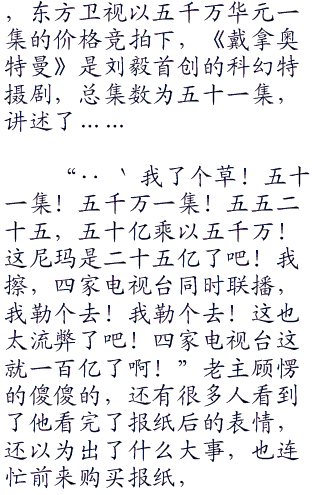 ，东方卫视以五千万华元一
集的价格竞拍下，《戴拿奥
特曼》是刘毅首创的科幻特
摄剧，总集数为五十一集，
讲述了……
“‥‵我了个草！五十
一集！五千万一集！五五二
十五，五十亿乘以五千万！
这尼玛是二十五亿了吧！我
擦，四家电视台同时联播，
我勒个去！我勒个去！这也
太流弊了吧！四家电视台这
就一百亿了啊！”老主顾愣
的傻傻的，还有很多人看到
了他看完了报纸后的表情，
还以为出了什么大事，也连
忙前来购买报纸，